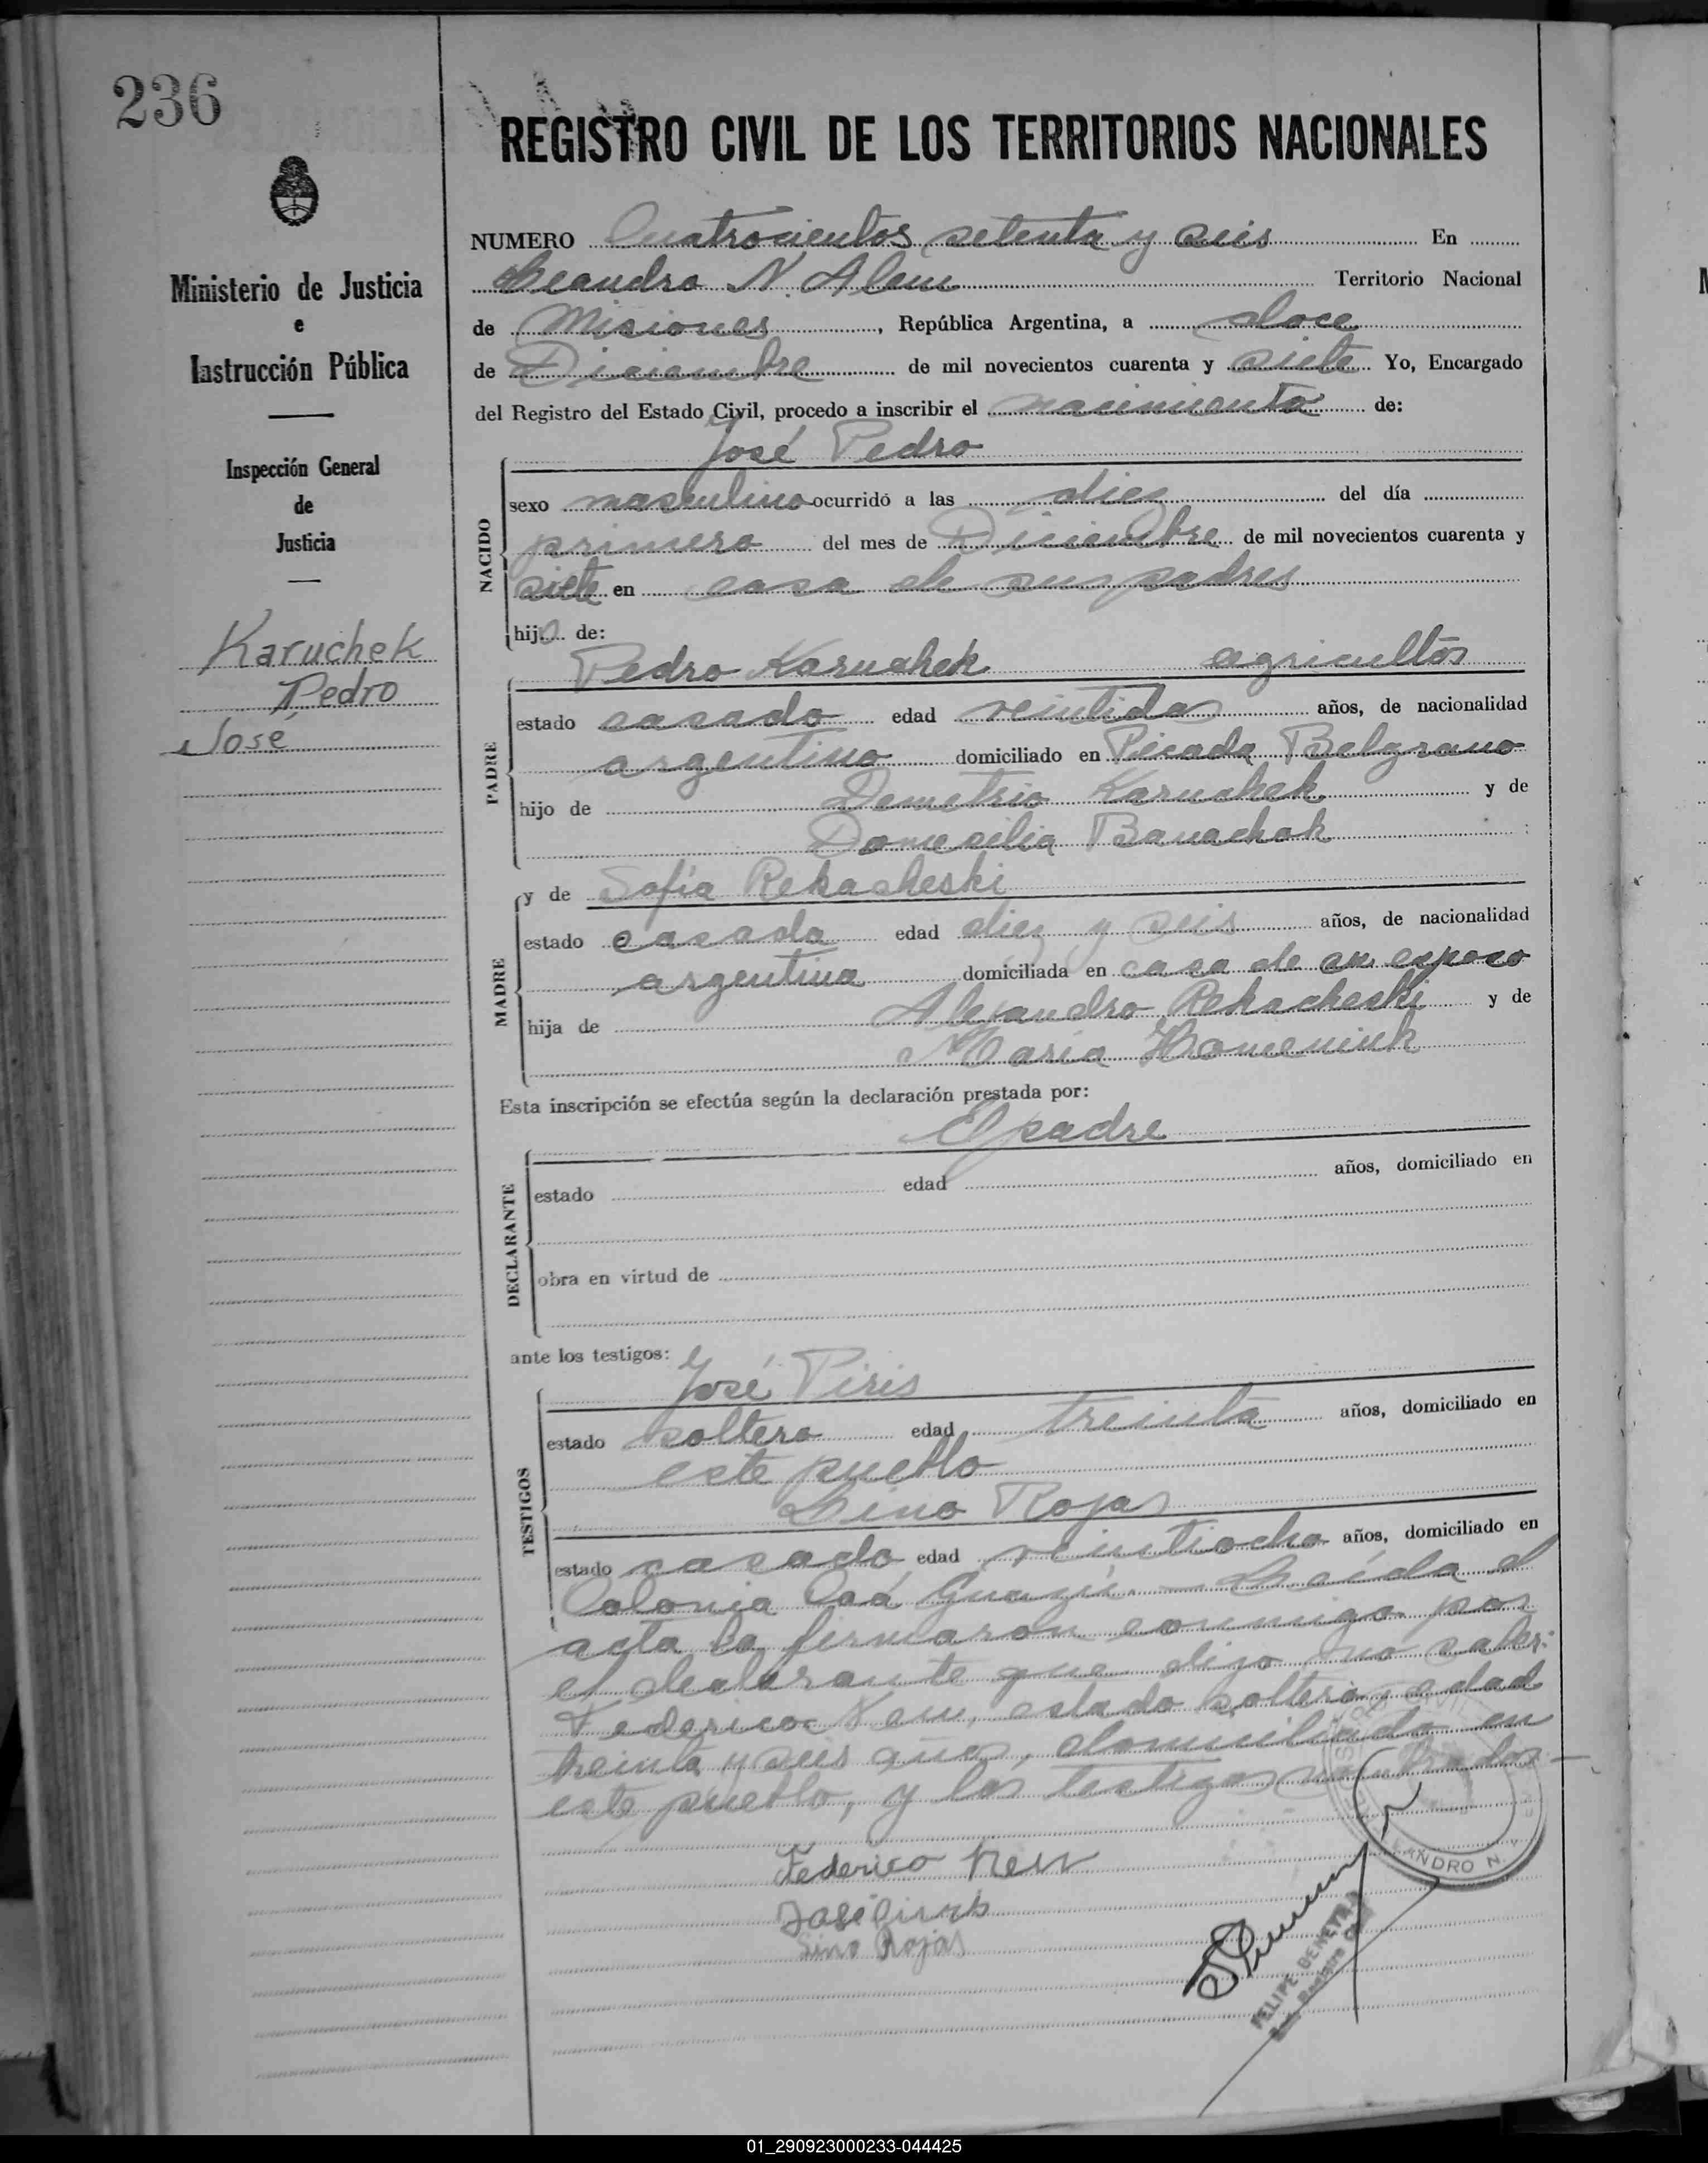 236
REGISTRO CIVIL DE LOS TERRITORIOS NACIONALES
Ministerio de Justicia
e
Instrucción Pública
Inspección General
de
Justicia
Karuchek
Pedro
José
NUMERO Cuatrocientos setenta y seis En
Leandro N. Alem Territorio Nacional
de Misiones, República Argentina, a doce
de Diciembre de mil novecientos cuarenta y siete Yo, Encargado
del Registro del Estado Civil, procedo a inscribir el nacimiento de:
José Pedro
NACIDO
sexo masculino ocurrido a las diez del día
primero del mes de Diciembre de mil novecientos cuarenta y
siete en casa de sus padres
hijo de:
Pedro Karuchek agricultor
PADRE
estado casado edad veintidos años, de nacionalidad
argentino domiciliado en Picada Belgrano
hijo de Demetrio Karuchek y de
Domesilia Banachok
y de Sofía Rekacheski
MADRE
estado casada edad diez y seis años, de nacionalidad
argentina domiciliada en casa de su esposo
hija de Alejandro Rekacheski y de
María Homeniuk
Esta inscripción se efectúa según la declaración prestada por:
El padre
DECLARANTE
estado edad años, domiciliado en
obra en virtud de
ante los testigos:
José Piris
TESTIGOS
estado soltero edad treinta años, domiciliado en
este pueblo
Lino Rojas
estado casado edad veintiocho años, domiciliado en
Colonia Caá Guazú. — Leída el
acta la firmaron conmigo por
el declarante que dijo no saber:
Federico Neu, estado soltero, edad
treinta y seis años, domiciliado en
este pueblo, y los testigos nombrados —
Federico Neu
José Piris
Lino Rojas
LEANDRO N.
FELIPE BENEYAS
Registro
01_290923000233-044425